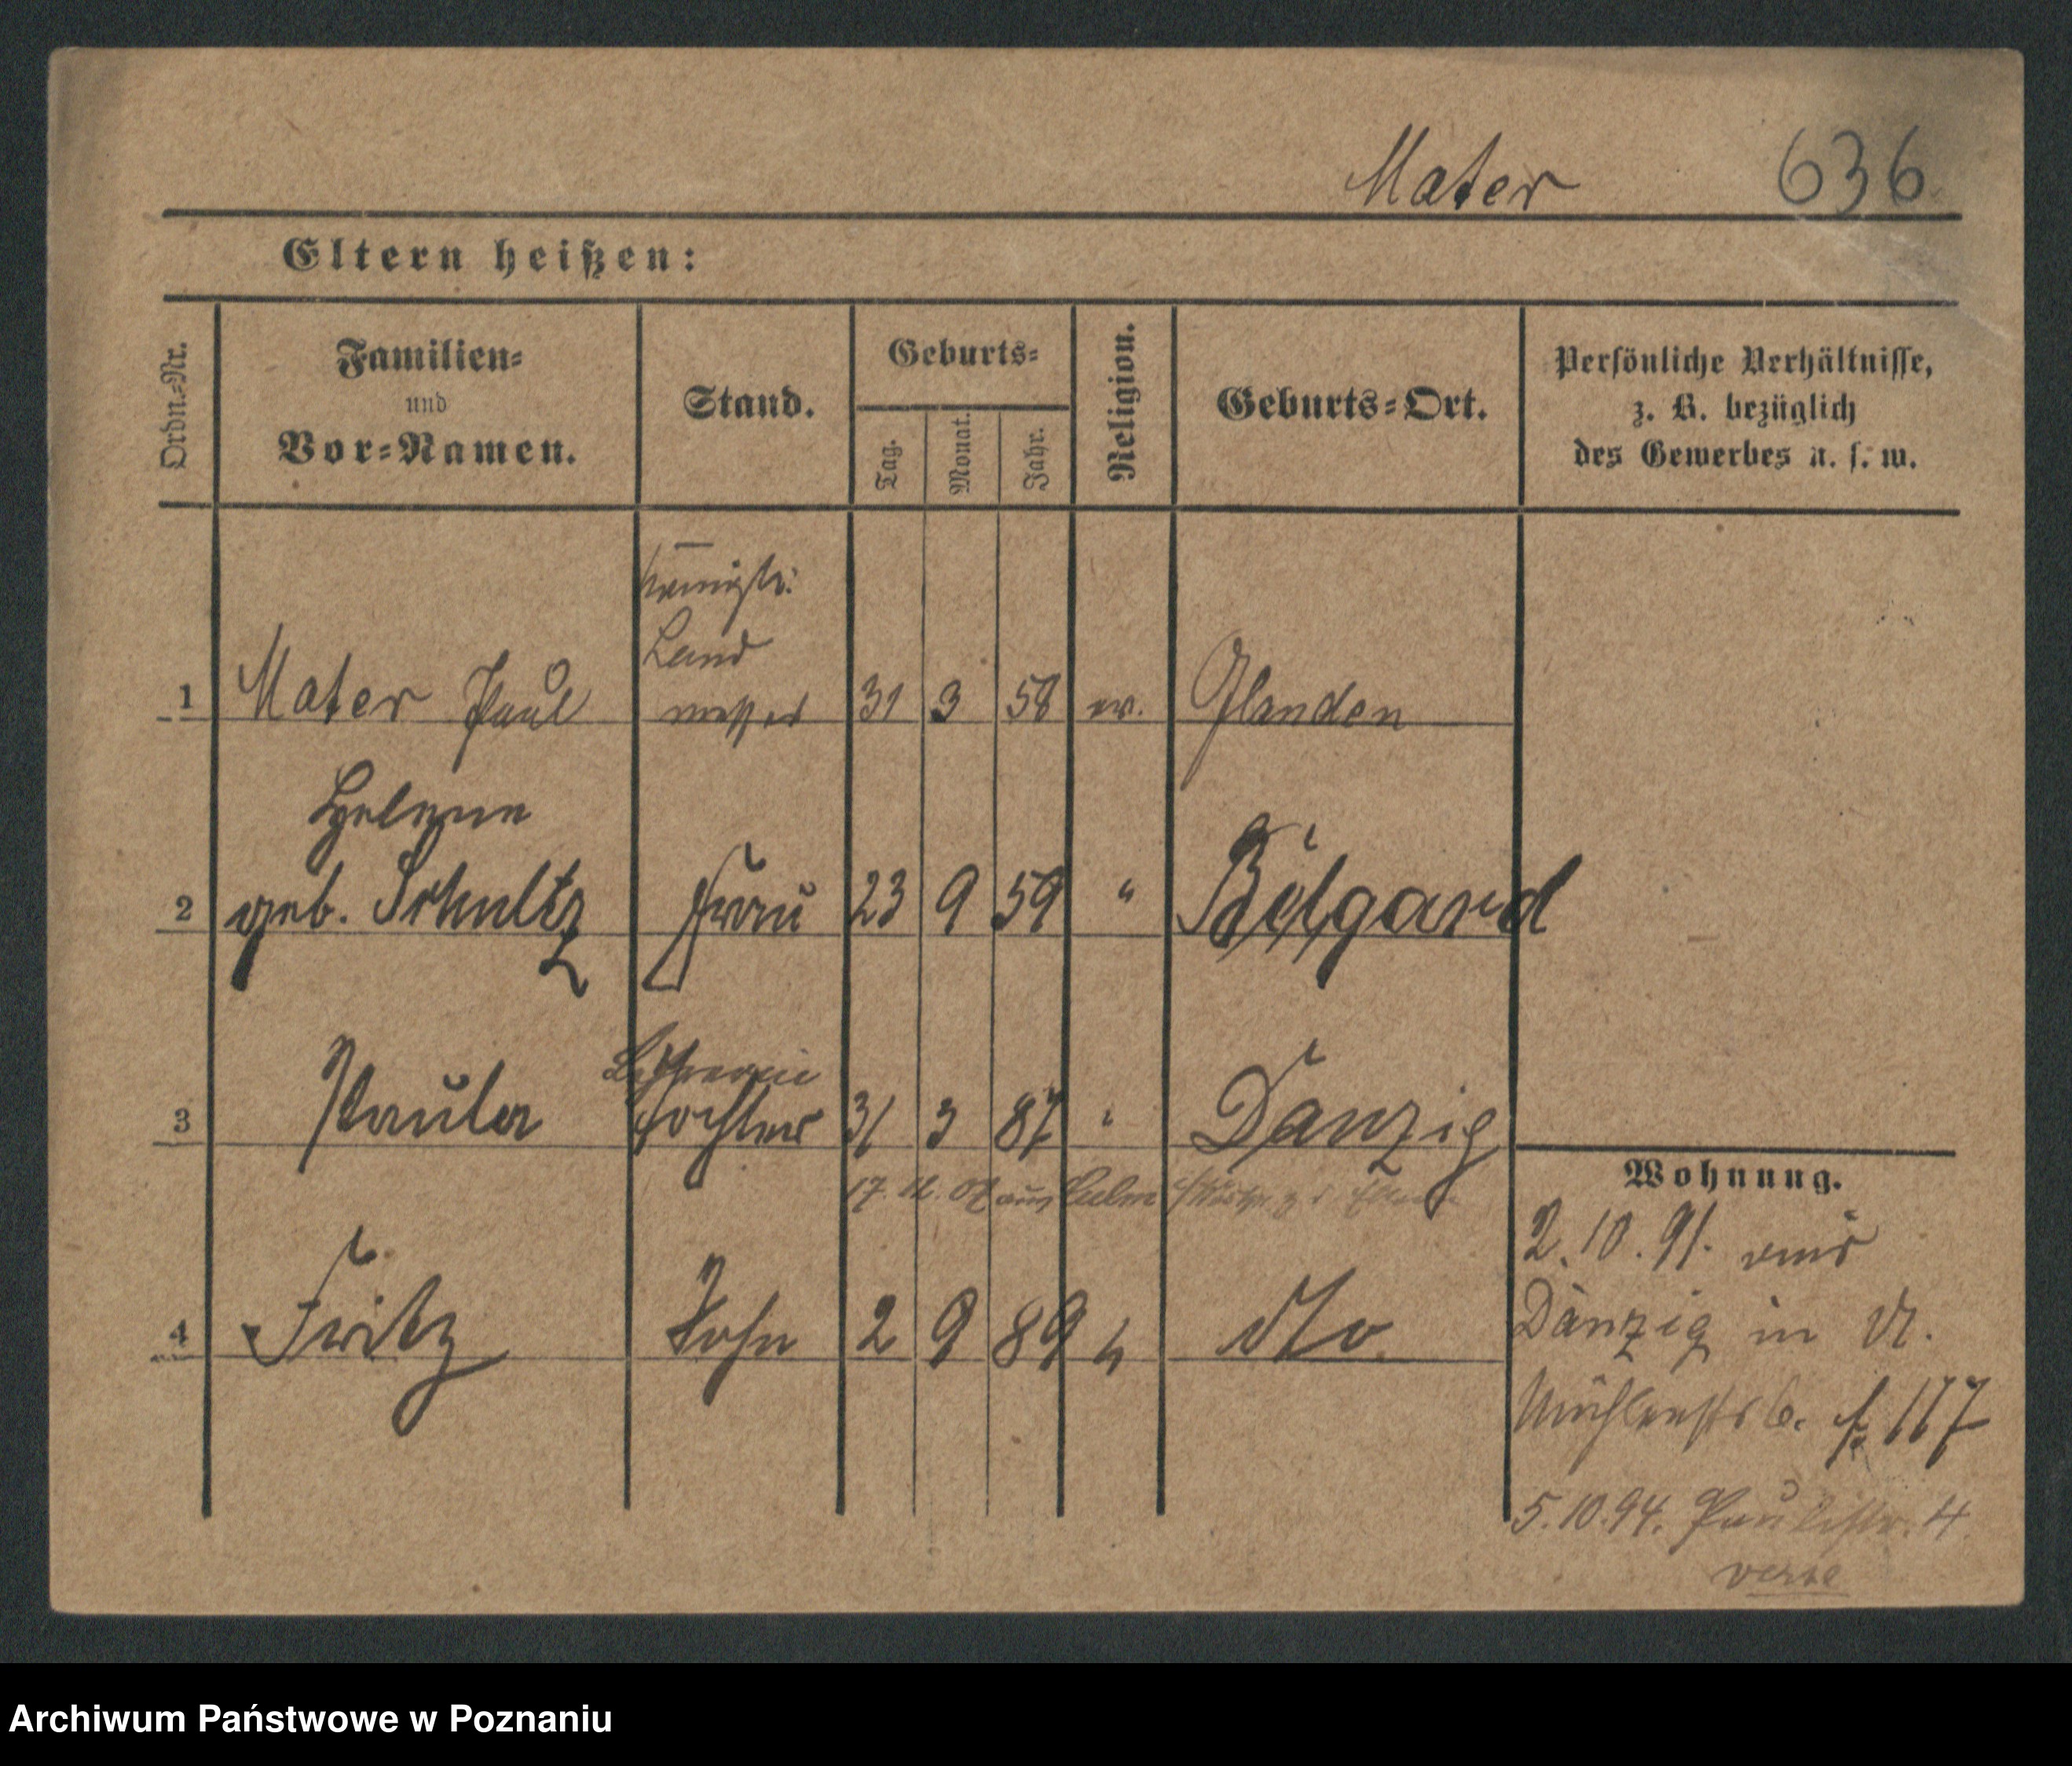 Mater 636
Eltern heißen:
Ordn.=Nr.
Familien=
und
Vor=Namen.
Stand.
Geburts=
Tag.
Monat.
Jahr.
Religion.
Geburts=Ort.
Persönliche Verhältnisse,
z. B. bezüglich
des Gewerbes u. s. w.
Königl.
Land
1 Mater Paul messer 31 3 58 ev. Glanden
Helene
2 geb. Schultz Frau 23 9 59 " Belgard
Lehrerin
3 Paula Tochter 31 3 87 " Danzig
17. 12. 07 aus Culm
4 Fritz Sohn 2 9 89 " do
Wohnung.
2.10.91. aus
Danzig in
Mühlenstr 6. 117
5.10.94. Paulistr. 4
Archiwum Państwowe w Poznaniu